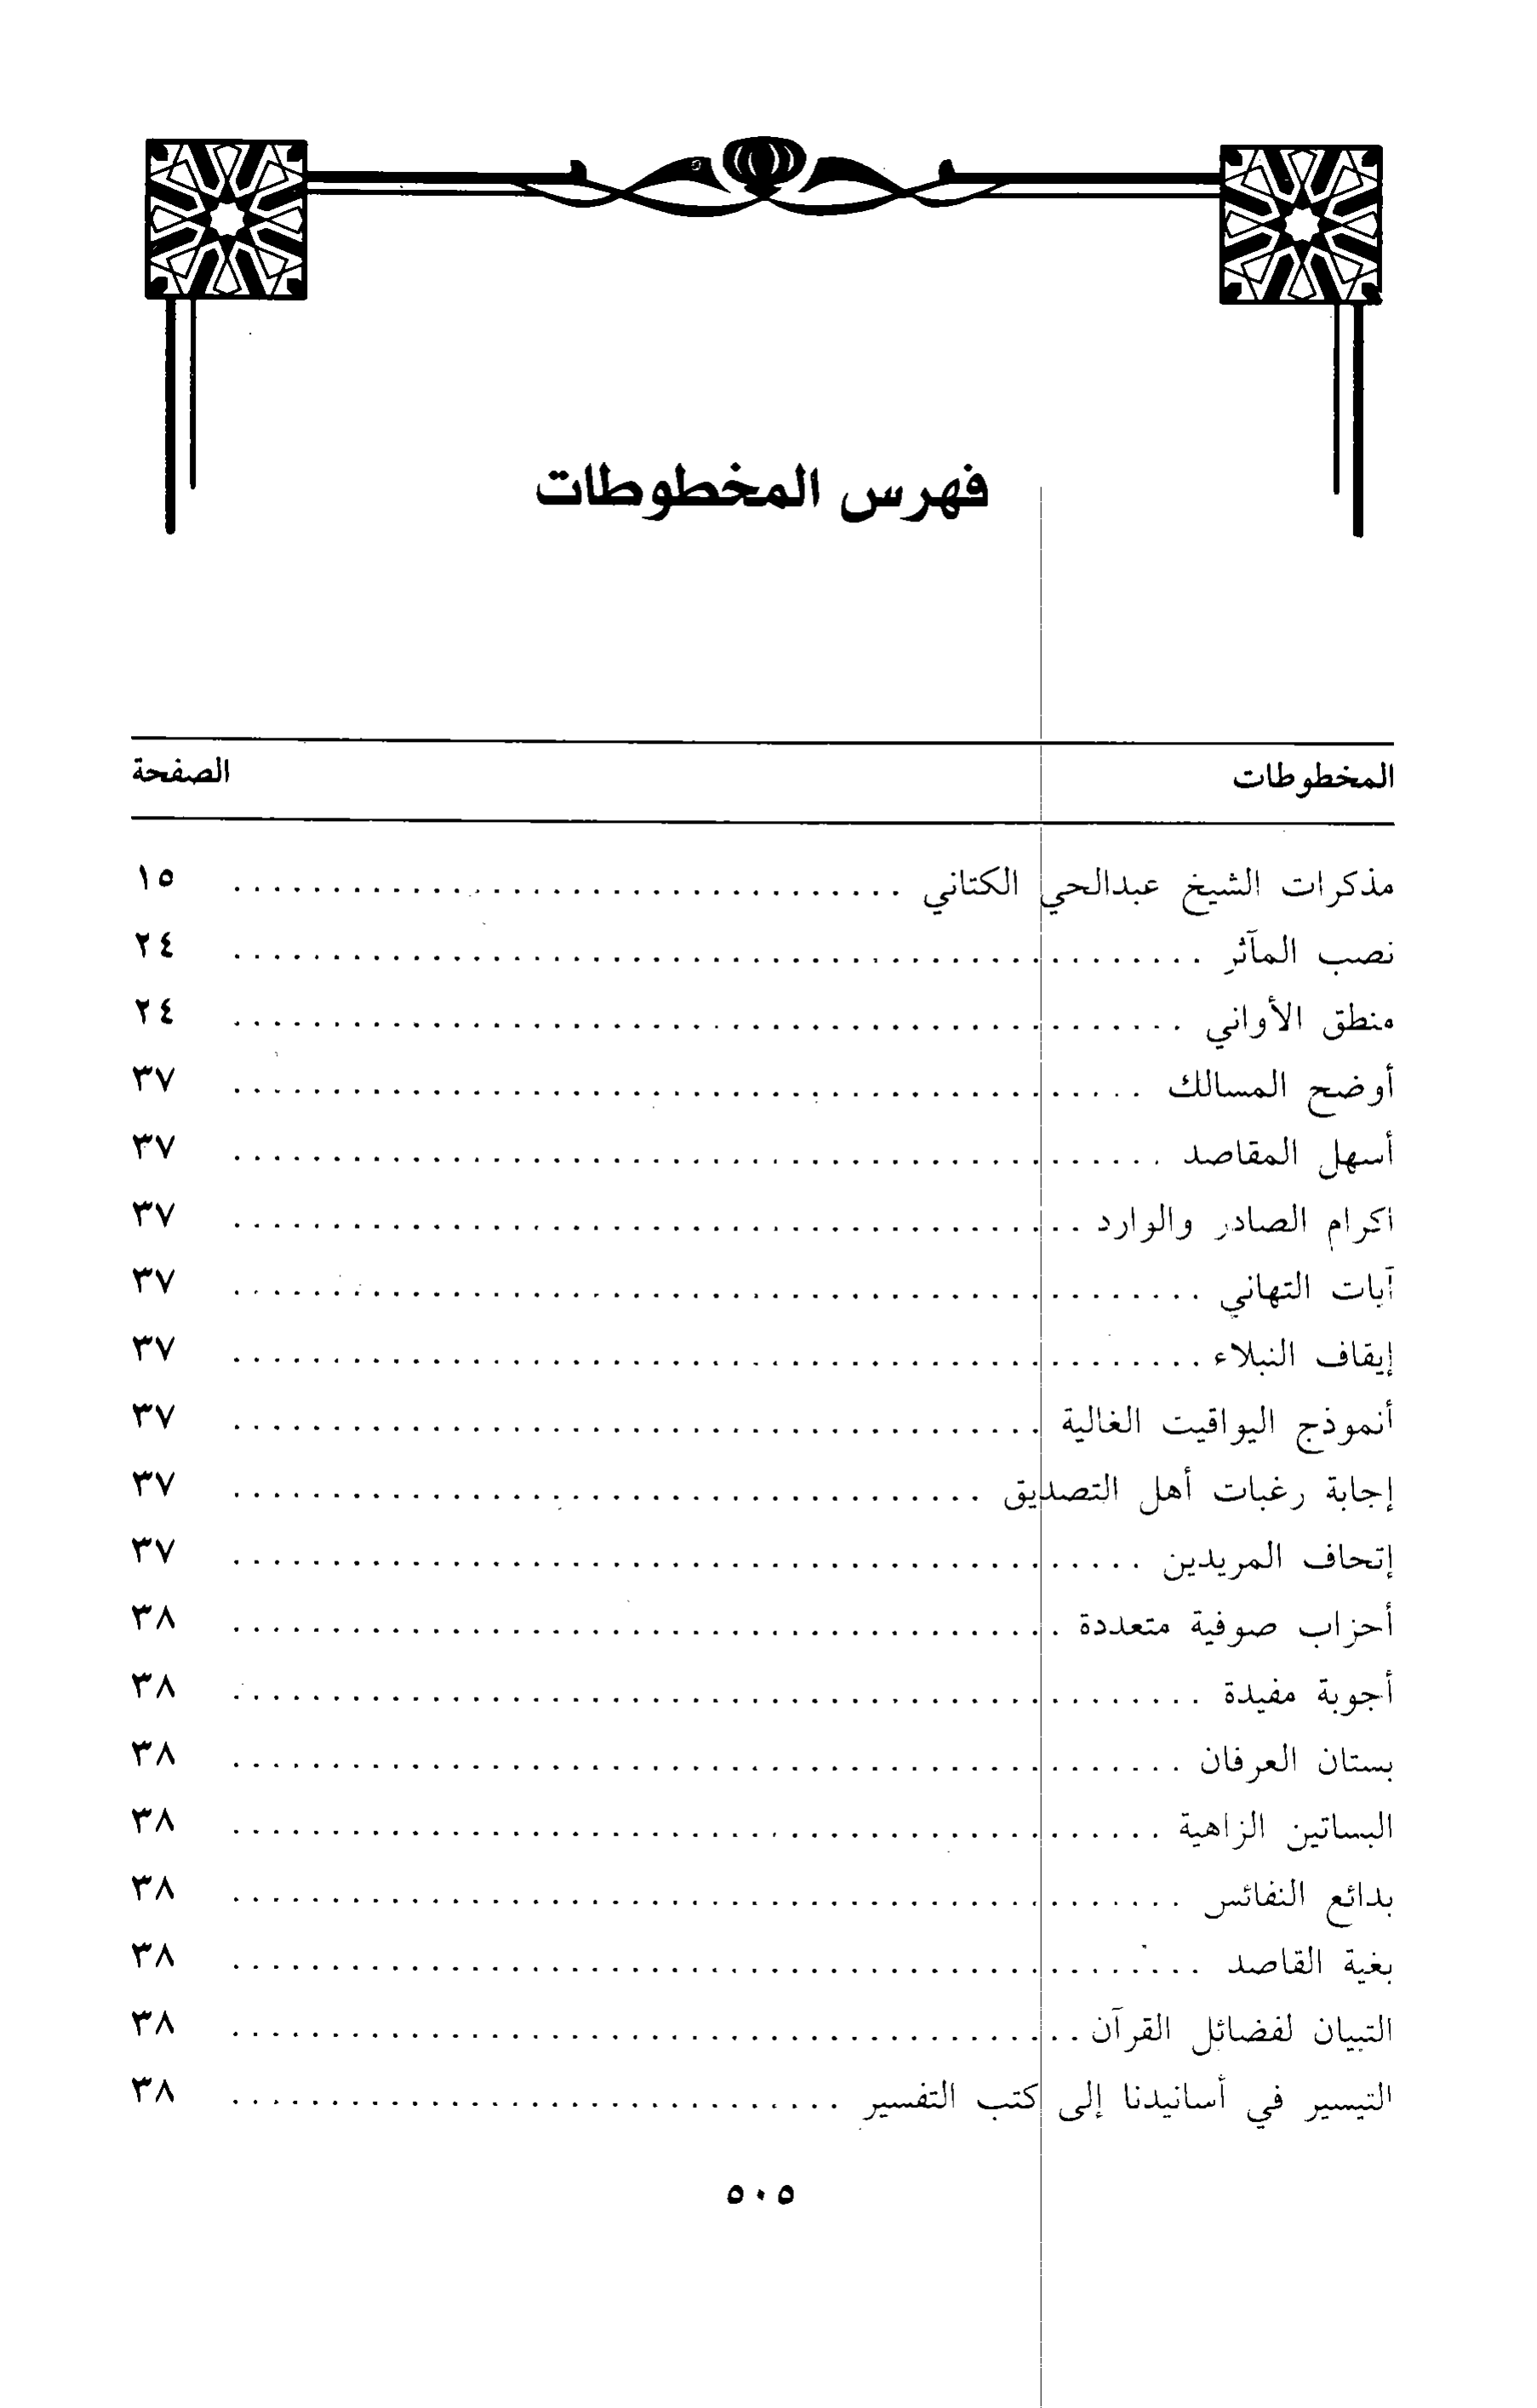 فهرس المخطوطات
المخطوطات الصفحة
مذكرات الشيخ عبدالحي الكتاني ١٥
نصب المآثر ٢٤
منطق الأواني ٢٤
أوضح المسالك ٣٧
أسهل المقاصد ٣٧
اكرام الصادر والوارد ٣٧
آيات التهاني ٣٧
إيقاف النبلاء ٣٧
أنموذج اليواقيت الغالية ٣٧
إجابة رغبات أهل التصديق ٣٧
إتحاف المريدين ٣٧
أحزاب صوفية متعددة ٣٨
أجوبة مفيدة ٣٨
بستان العرفان ٣٨
البساتين الزاهية ٣٨
بدائع النفائس ٣٨
بغية القاصد ٣٨
التبيان لفضائل القرآن ٣٨
التيسير في أسانيدنا إلى كتب التفسير ٣٨
٥٠٥